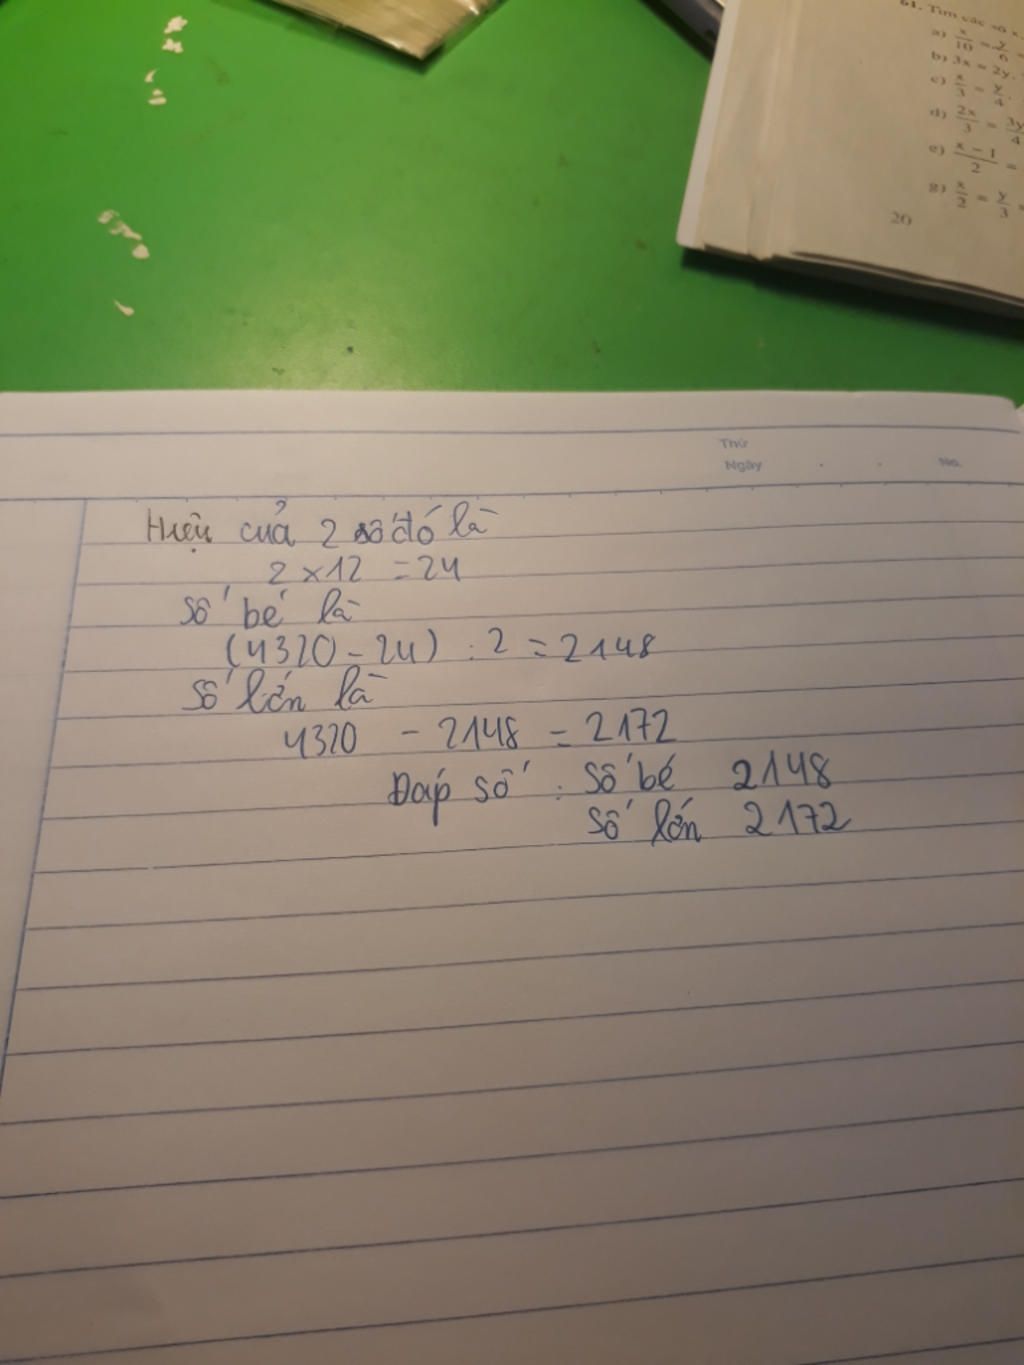 61. Tìm các số x,
a) x/10 = y/6
b) 3x = 2y.
c) x/3 = y/4.
d) 2x/3 = 3y/4
e) x - 1/2 =
g) x/2 = y/3 =
20
Thứ
Ngày . . No.
Hiệu của 2 số đó là
2 x 12 = 24
số bé là
(4320 - 24) : 2 = 2148
số lớn là
4320 - 2148 = 2172
Đáp số : số bé 2148
số lớn 2172